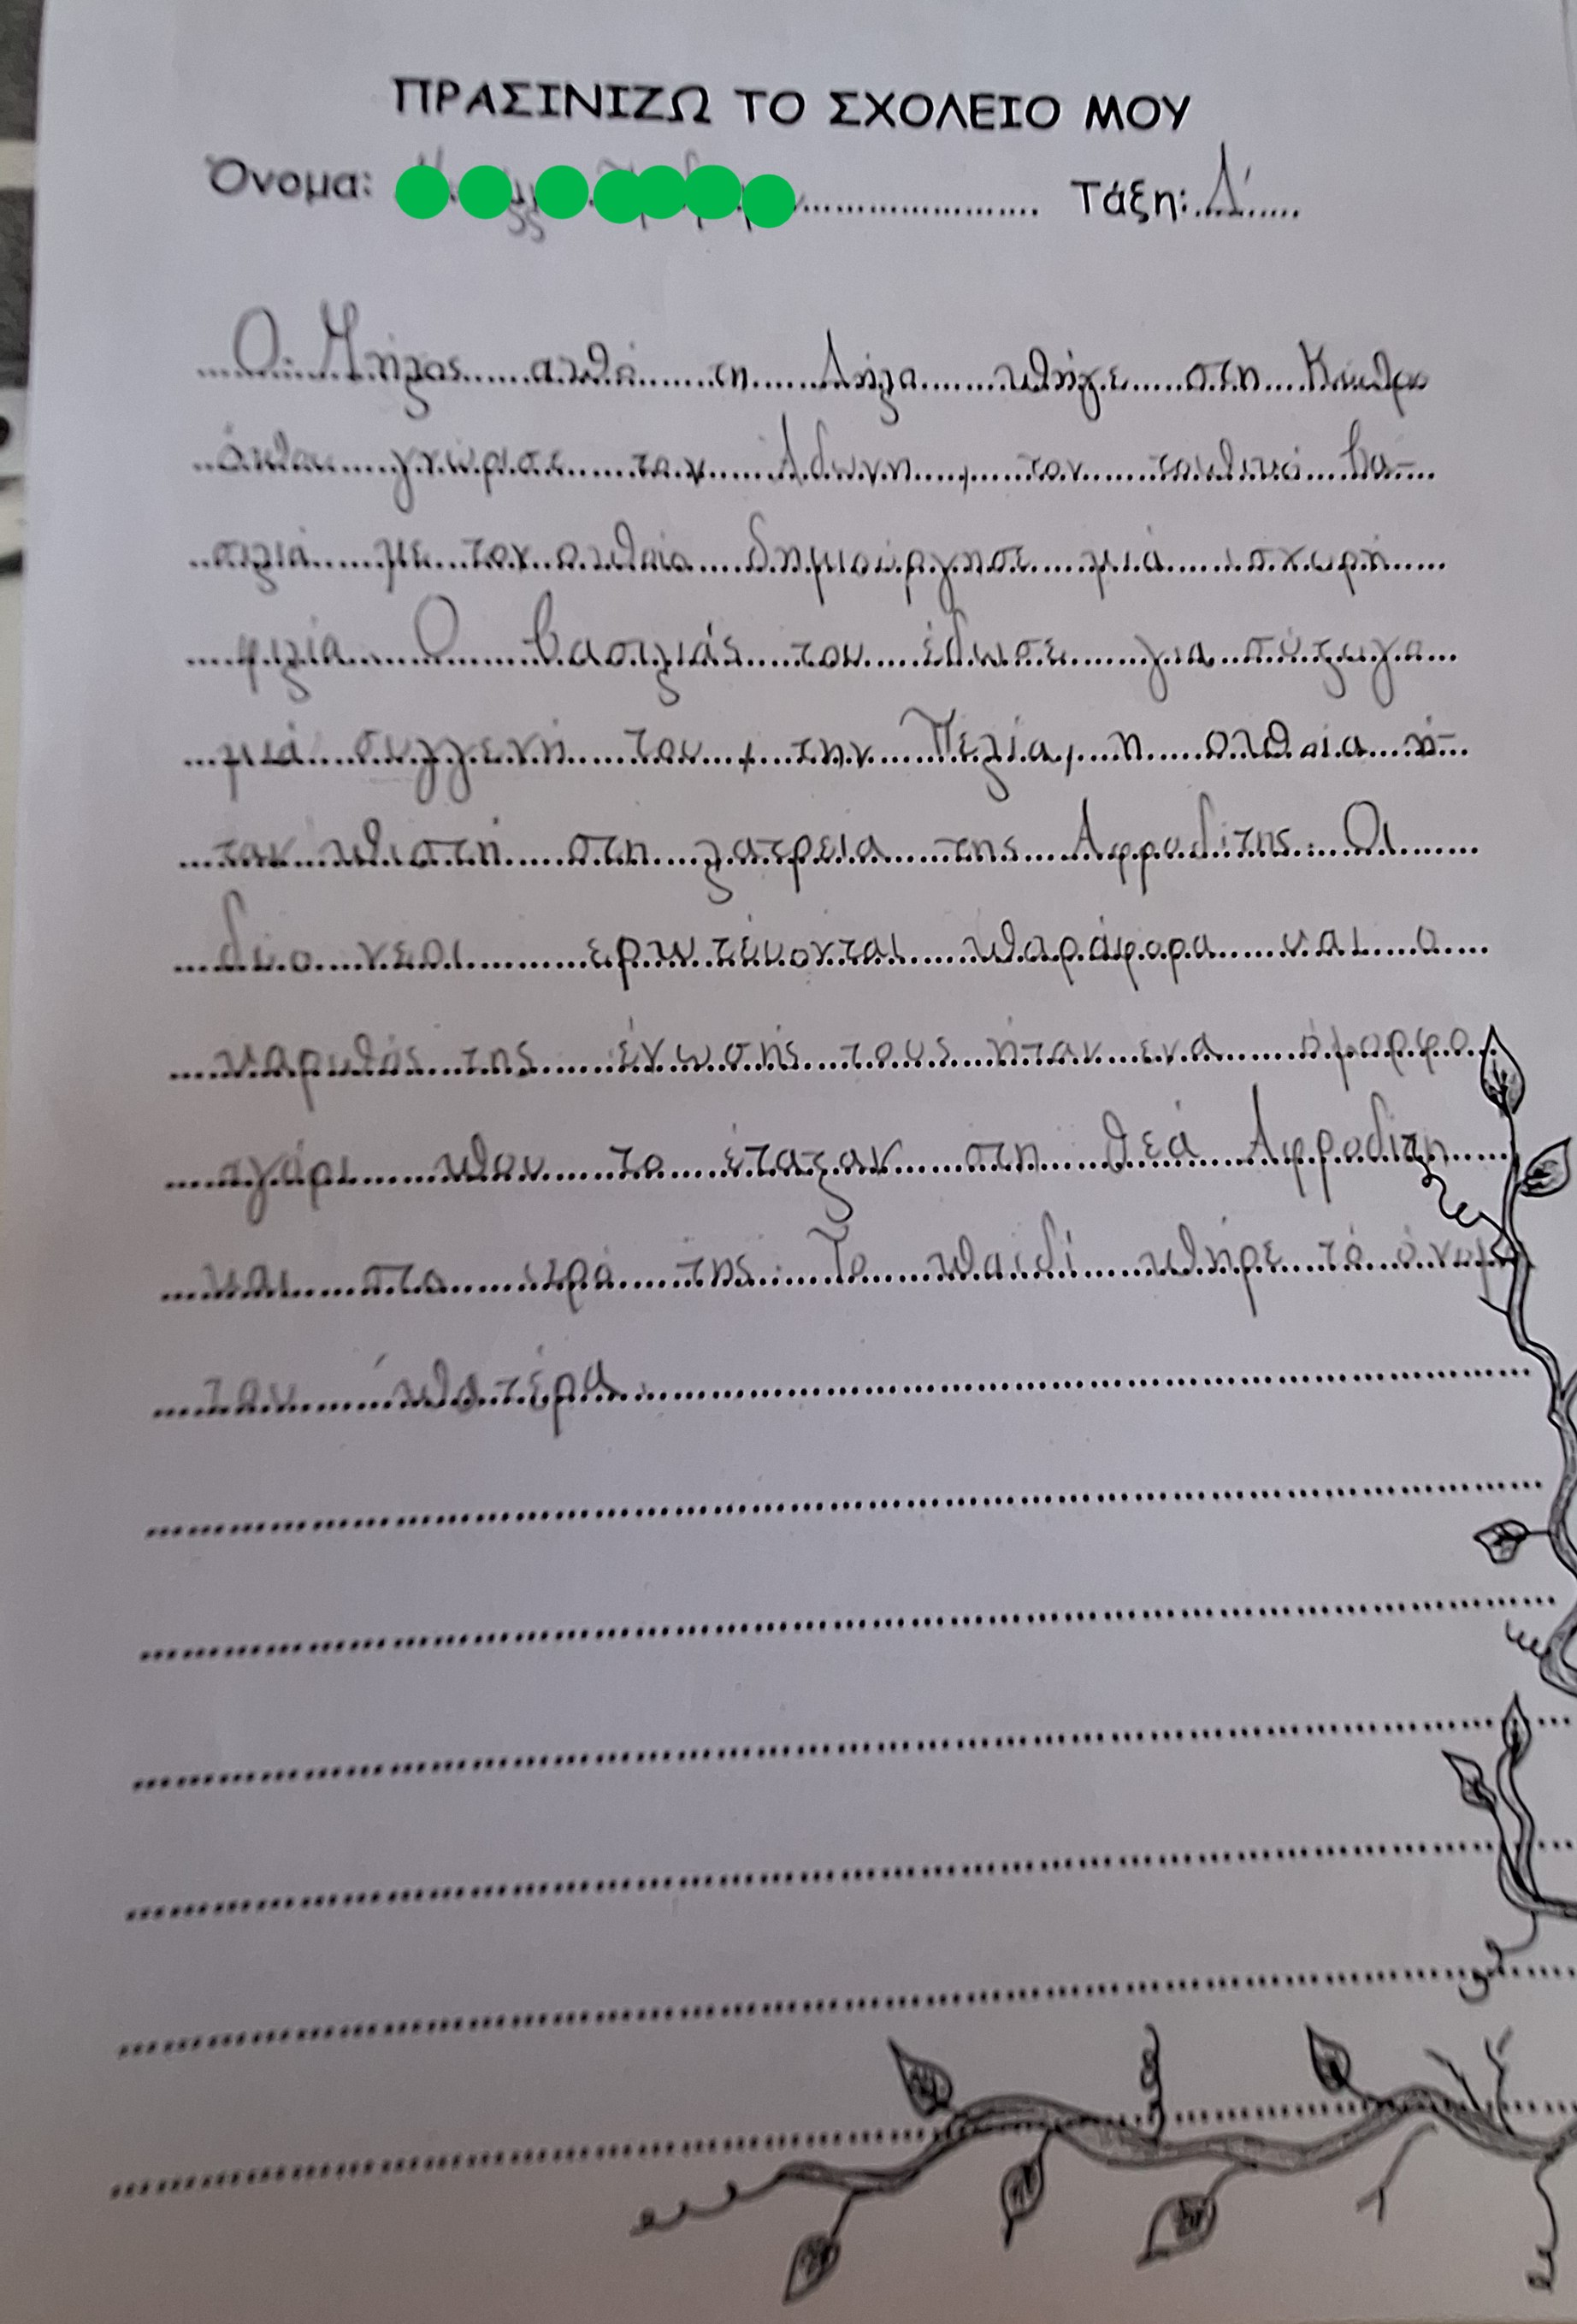 ΠΡΑΣΙΝΙΖΩ ΤΟ ΣΧΟΛΕΙΟ ΜΟΥ
Όνομα: Τάξη: Δ'
Ο Μήλος από τη Δήλο πήγε στη Κύπρο
όπου γνώρισε τον Αδωνη, τον τοπικό βα-
σιλιά με τον οποίο δημιούργησε μιά ισχυρή
φιλία. Ο βασιλιάς του έδωσε για σύζυγο
μιά συγγενή του, την Πελία, η οποία ή-
ταν πιστή στη λατρεία της Αφροδίτης. Οι
δύο νεοι ερωτεύονται παράφορα και ο
καρπός της ένωσής τους ήταν ενα όμορφο
αγόρι που το έταξαν στη θεά Αφροδίτη
και στο ιερό της. Το παιδί πήρε τό όνομα
του πατέρα.